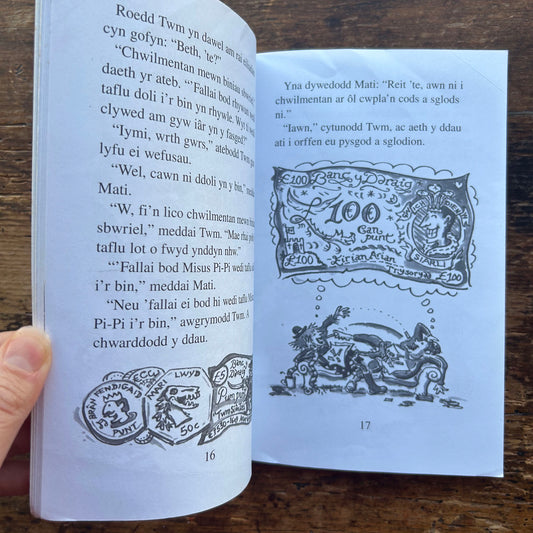 Roedd Twm yn dawel am rai eiliadau
cyn gofyn: “Beth, ’te?”
“Chwilmentan mewn biniau sbwriel,”
daeth yr ateb. “’Fallai bod rhywun
taflu doli i’r bin yn rhywle. Wyt ti
clywed am gyw iâr yn y fasged?”
“Iymi, wrth gwrs,” atebodd Twm
lyfu ei wefusau.
“Wel, cawn ni ddoli yn y bin,”
Mati.
“W, fi’n lico chwilmentan mewn
sbwriel,” meddai Twm. “Mae rhai
taflu lot o fwyd ynddyn nhw.”
“’Fallai bod Misus Pi-Pi wedi taflu
i’r bin,” meddai Mati.
“Neu ’fallai ei bod hi wedi taflu
Pi-Pi i’r bin,” awgrymodd Twm. A
chwarddodd y ddau.
BRÂN FENDIGAID
PUNT
MARI LWYD
50c
£5 Banc y Ddraig
Pum punt
16
Yna dywedodd Mati: “Reit ’te, awn ni i
chwilmentan ar ôl cwpla’n cods a sglods
ni.”
“Iawn,” cytunodd Twm, ac aeth y ddau
ati i orffen eu pysgod a sglodion.
£100 Banc y Ddraig
£100
Can
Punt
SIARLI
£100 Eirian Arian
Trysorydd £100
17